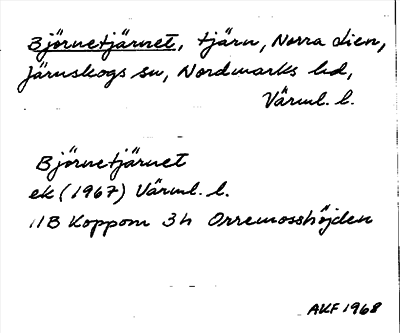 Björnetjärnet, tjärn, Norra Lien,
Järnskogs sn, Nordmarks hd,
Värml. l.
Björnetjärnet
ek (1967) Värml. l.
11B Koppom 3h Orremosshöjden
AKF 1968